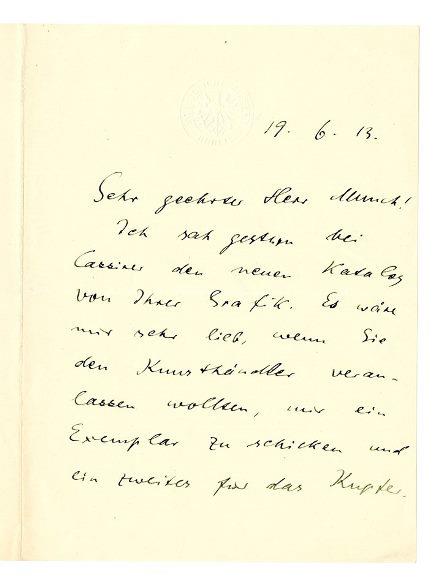 19. 6. 13.
Sehr geehrter Herr Munch!
Ich sah gestern bei
Cassirer den neuen Katalog
von Ihrer Grafik. Es wäre
mir sehr lieb, wenn Sie
den Kunsthändler veran-
lassen wollten, mir ein
Exemplar zu schicken und
ein zweites für das Kupfer-